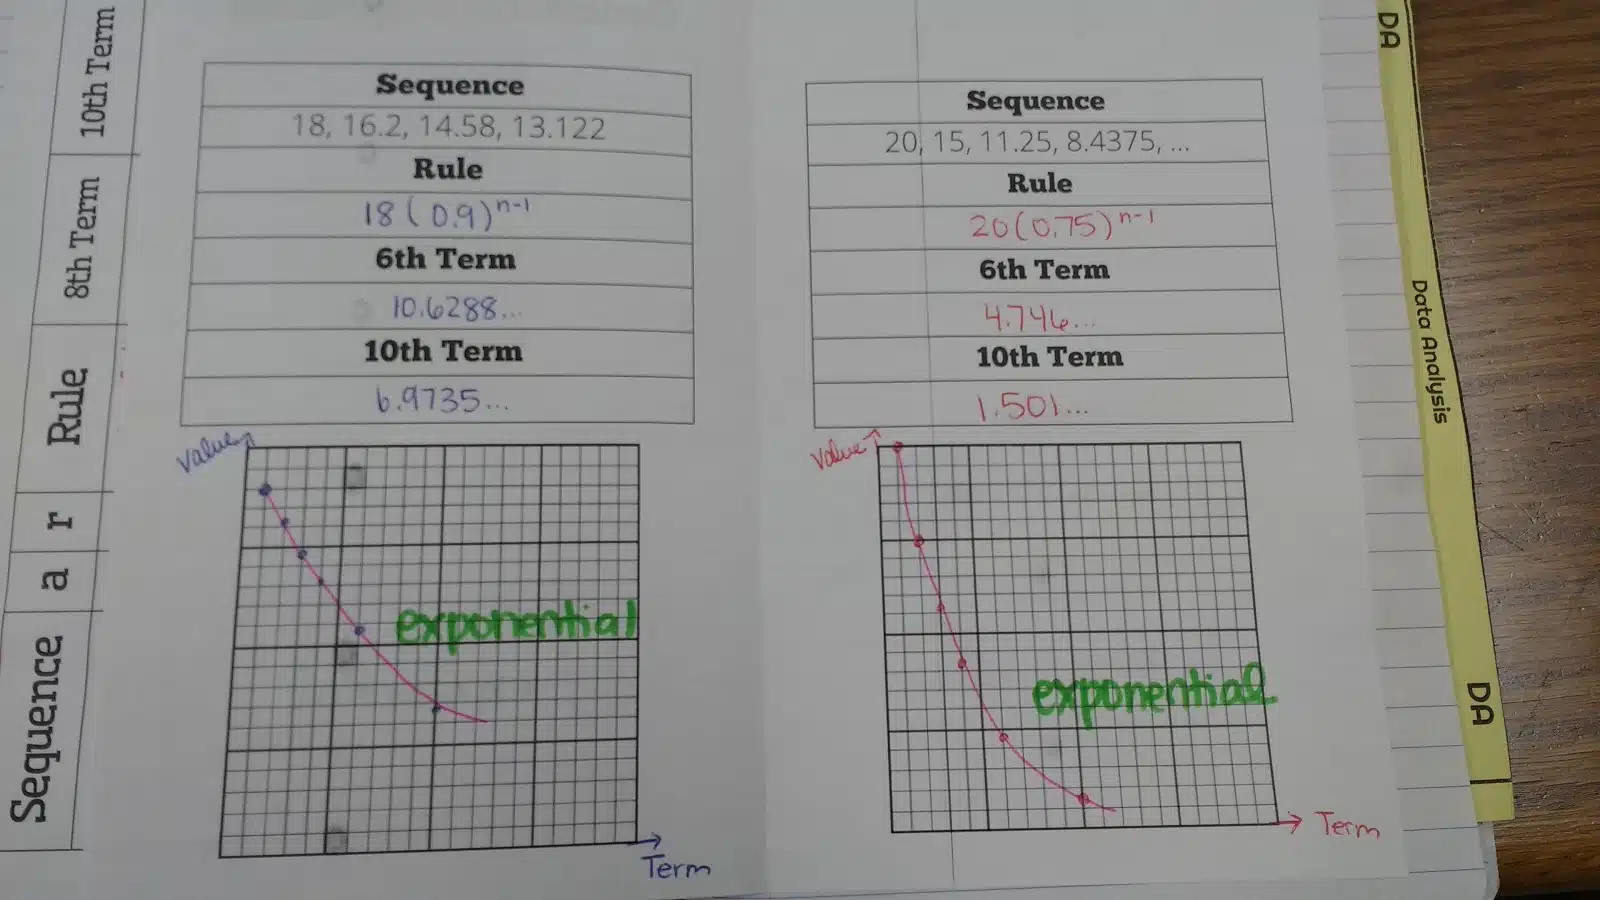 10th Term
8th Term
Rule
r
a
Sequence
Sequence
18, 16.2, 14.58, 13.122
Rule
18(0.9)^n-1
6th Term
10.6288...
10th Term
6.9735...
Value
exponential
Term
Sequence
20, 15, 11.25, 8.4375, ...
Rule
20(0.75)^n-1
6th Term
4.746...
10th Term
1.501...
Value
exponential
Term
DA
Data Analysis
DA